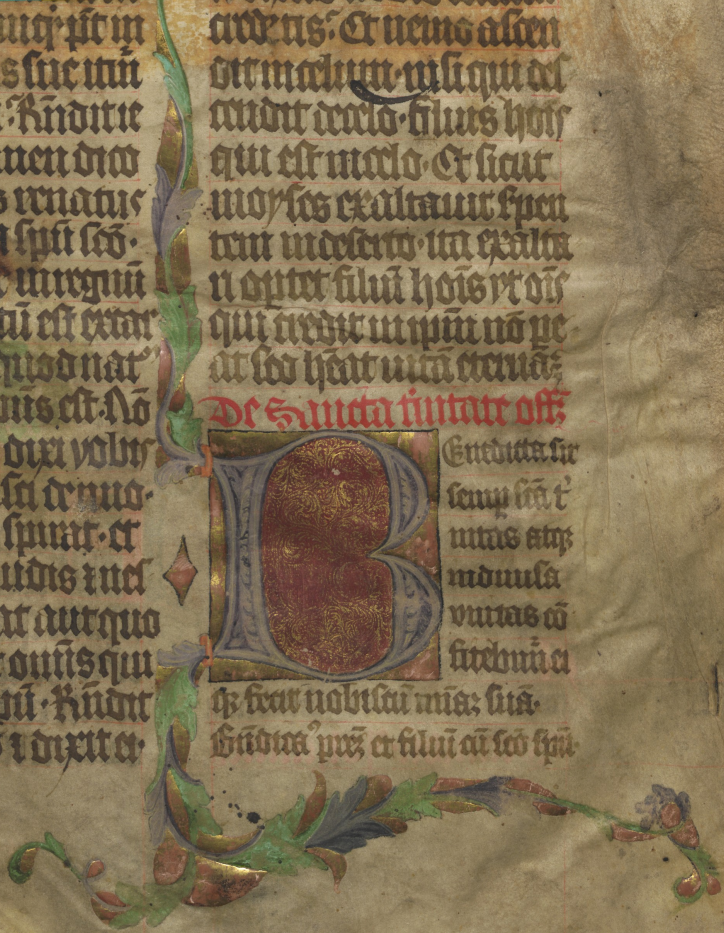 uuqꝫ pt̄ in
s sūc uitū
Rn̄dit ie
men dico
s renatus
spū sc̄o·
in regnū
tū est ex car
quod nat⁹
uus est· Nō
dixi vobis
sci denuo·
spirat· et
udis ⁊ nes
at aut quo
omīs qui
Rn̄dit
⁊ dixit ei·
creditis? Et nemo ascen
dit in celum· nisi qui des
cendit de celo· filius hoīs
qui est in celo· Et sicut
moyses exaltauit serpen
tem in deserto· ita exalta
ri oꝑtet filiū hoīs vt oīs
qui credit in ip̄m nō pe
at sed hēat uitā eternā:
De Sancta tinitate offꝫ
Benedicta sit
semꝑ sc̄a t͛
nitas atqꝫ
indiuisa
vnitas cō
fitebim̄ ei
qꝫ fecit nobiscū mīaꝫ sua·
Bn̄dica⁹ prēꝫ et filiū cū sc̄o spū·